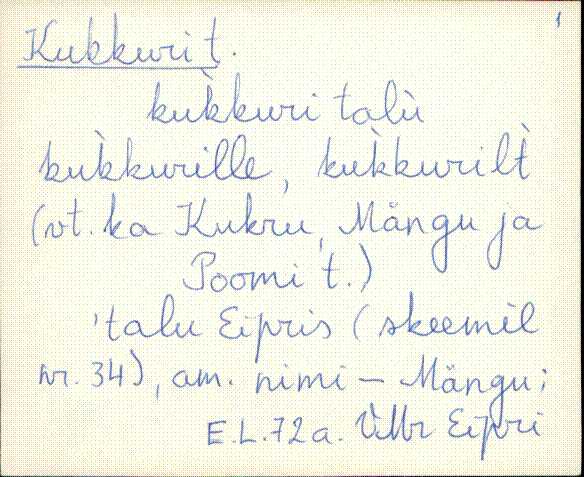 1
Kukkuri t.
kùkkuri talù
kùkkurille, kùkkurilt̀
(vt. ka Kukru, Mängu ja
Poomi t.)
'talu Eipris (skeemil
nr. 34), am. nimi – Mängu;
E.L. 72a. VMr Eipri